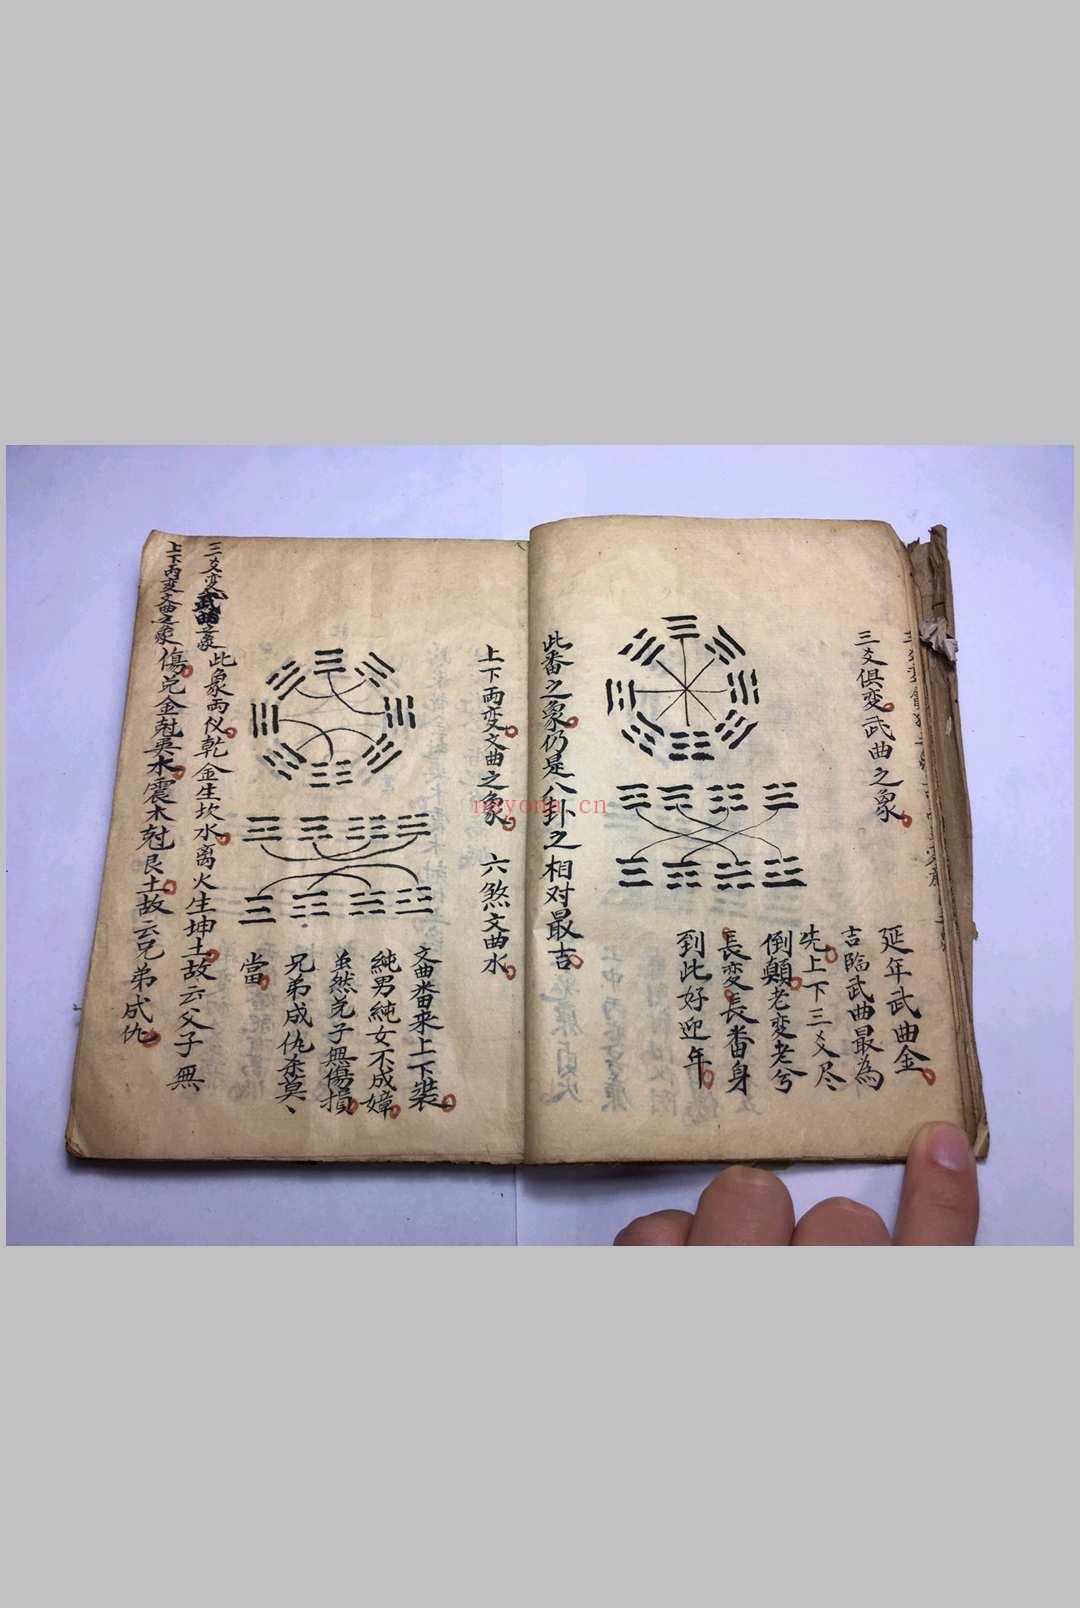 三爻俱変武曲之象
延年武曲金
吉臨武曲最為
先上下三爻尽
倒顛老変老兮
長変長番身
到此好迎年
此番之象仍是八卦之相対最吉
上下両変文曲之象 六煞文曲水
文曲番来上下裝
純男純女不成嫜
虽然羌子無傷損
兄弟成仇杀莫、
當
三爻変武曲之象此象両仪乾金生坎水离火生坤土故云父子無
上下両変文曲之象傷兑金尅巽木震木尅艮土故云兄弟成仇
nayona.cn